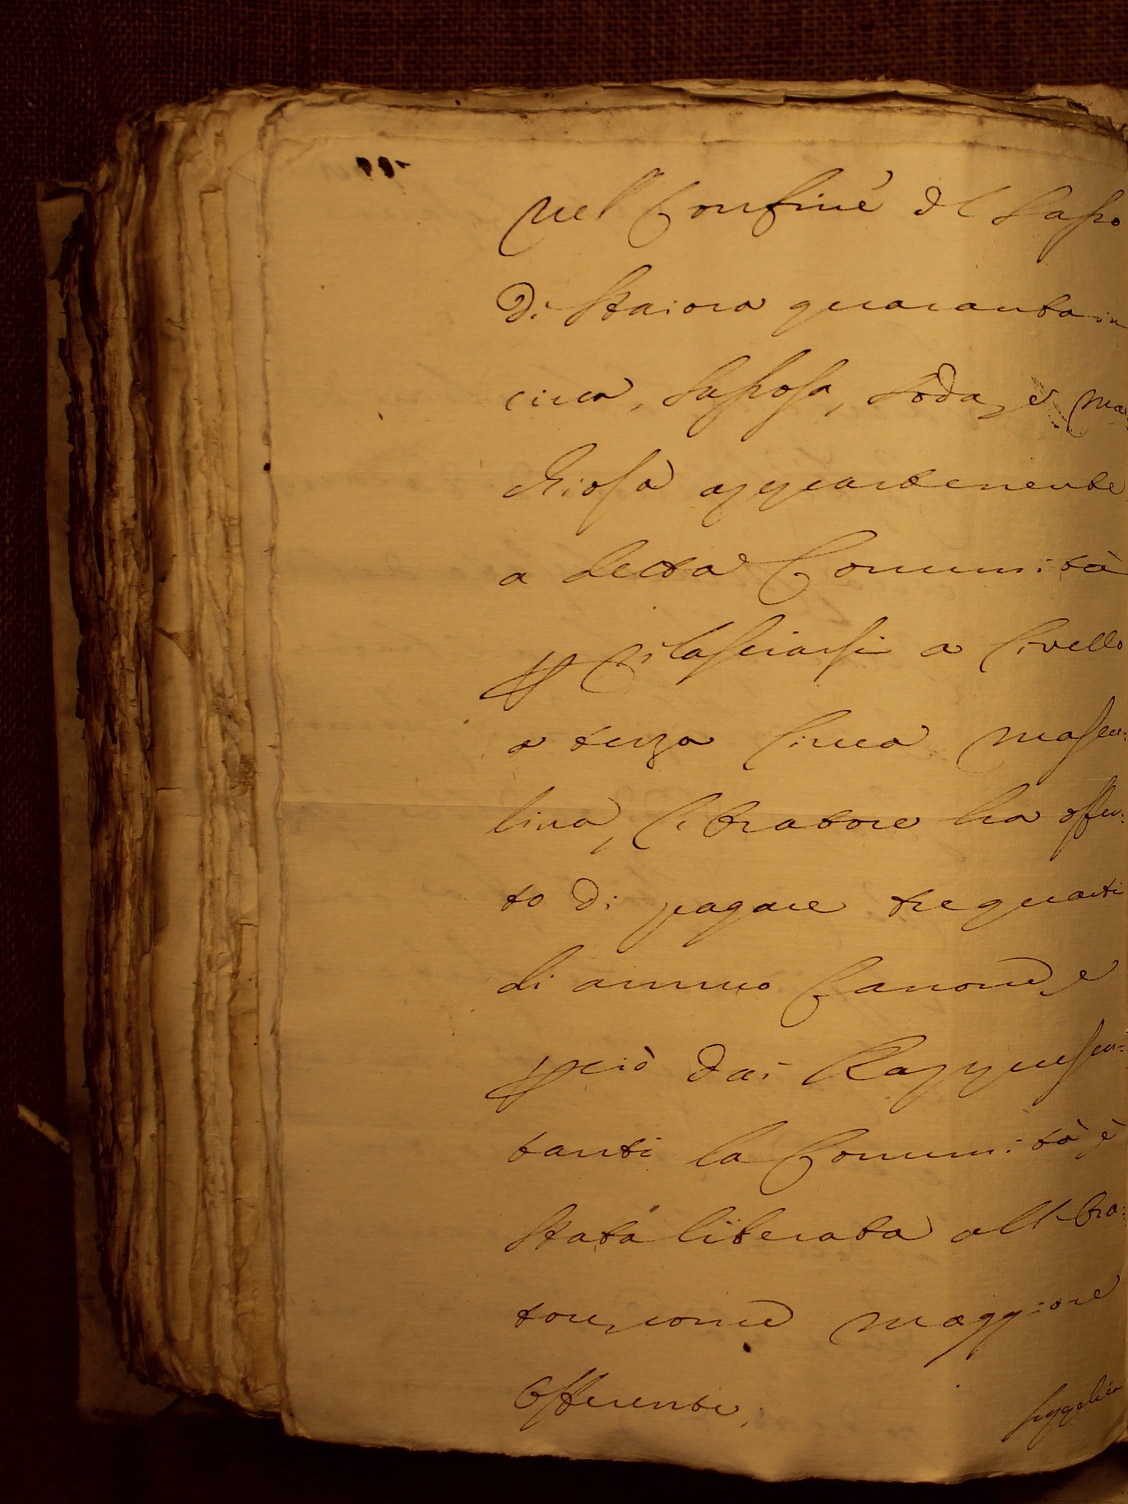 nel Confine del Sasso
di Staiora quaranta in
circa, Sassosa, soda, e ma
chiosa appartenente
a detta Comunità
p rilasciarsi a livello
a terza linea mascu:
lina, l'Oratore ha offer:
to di pagare tre quarti
di annuo Canone, e
pciò dai Rappresen:
tanti la Comunità è
stata liberata all'Ora:
tore, come maggiore
Offerente.